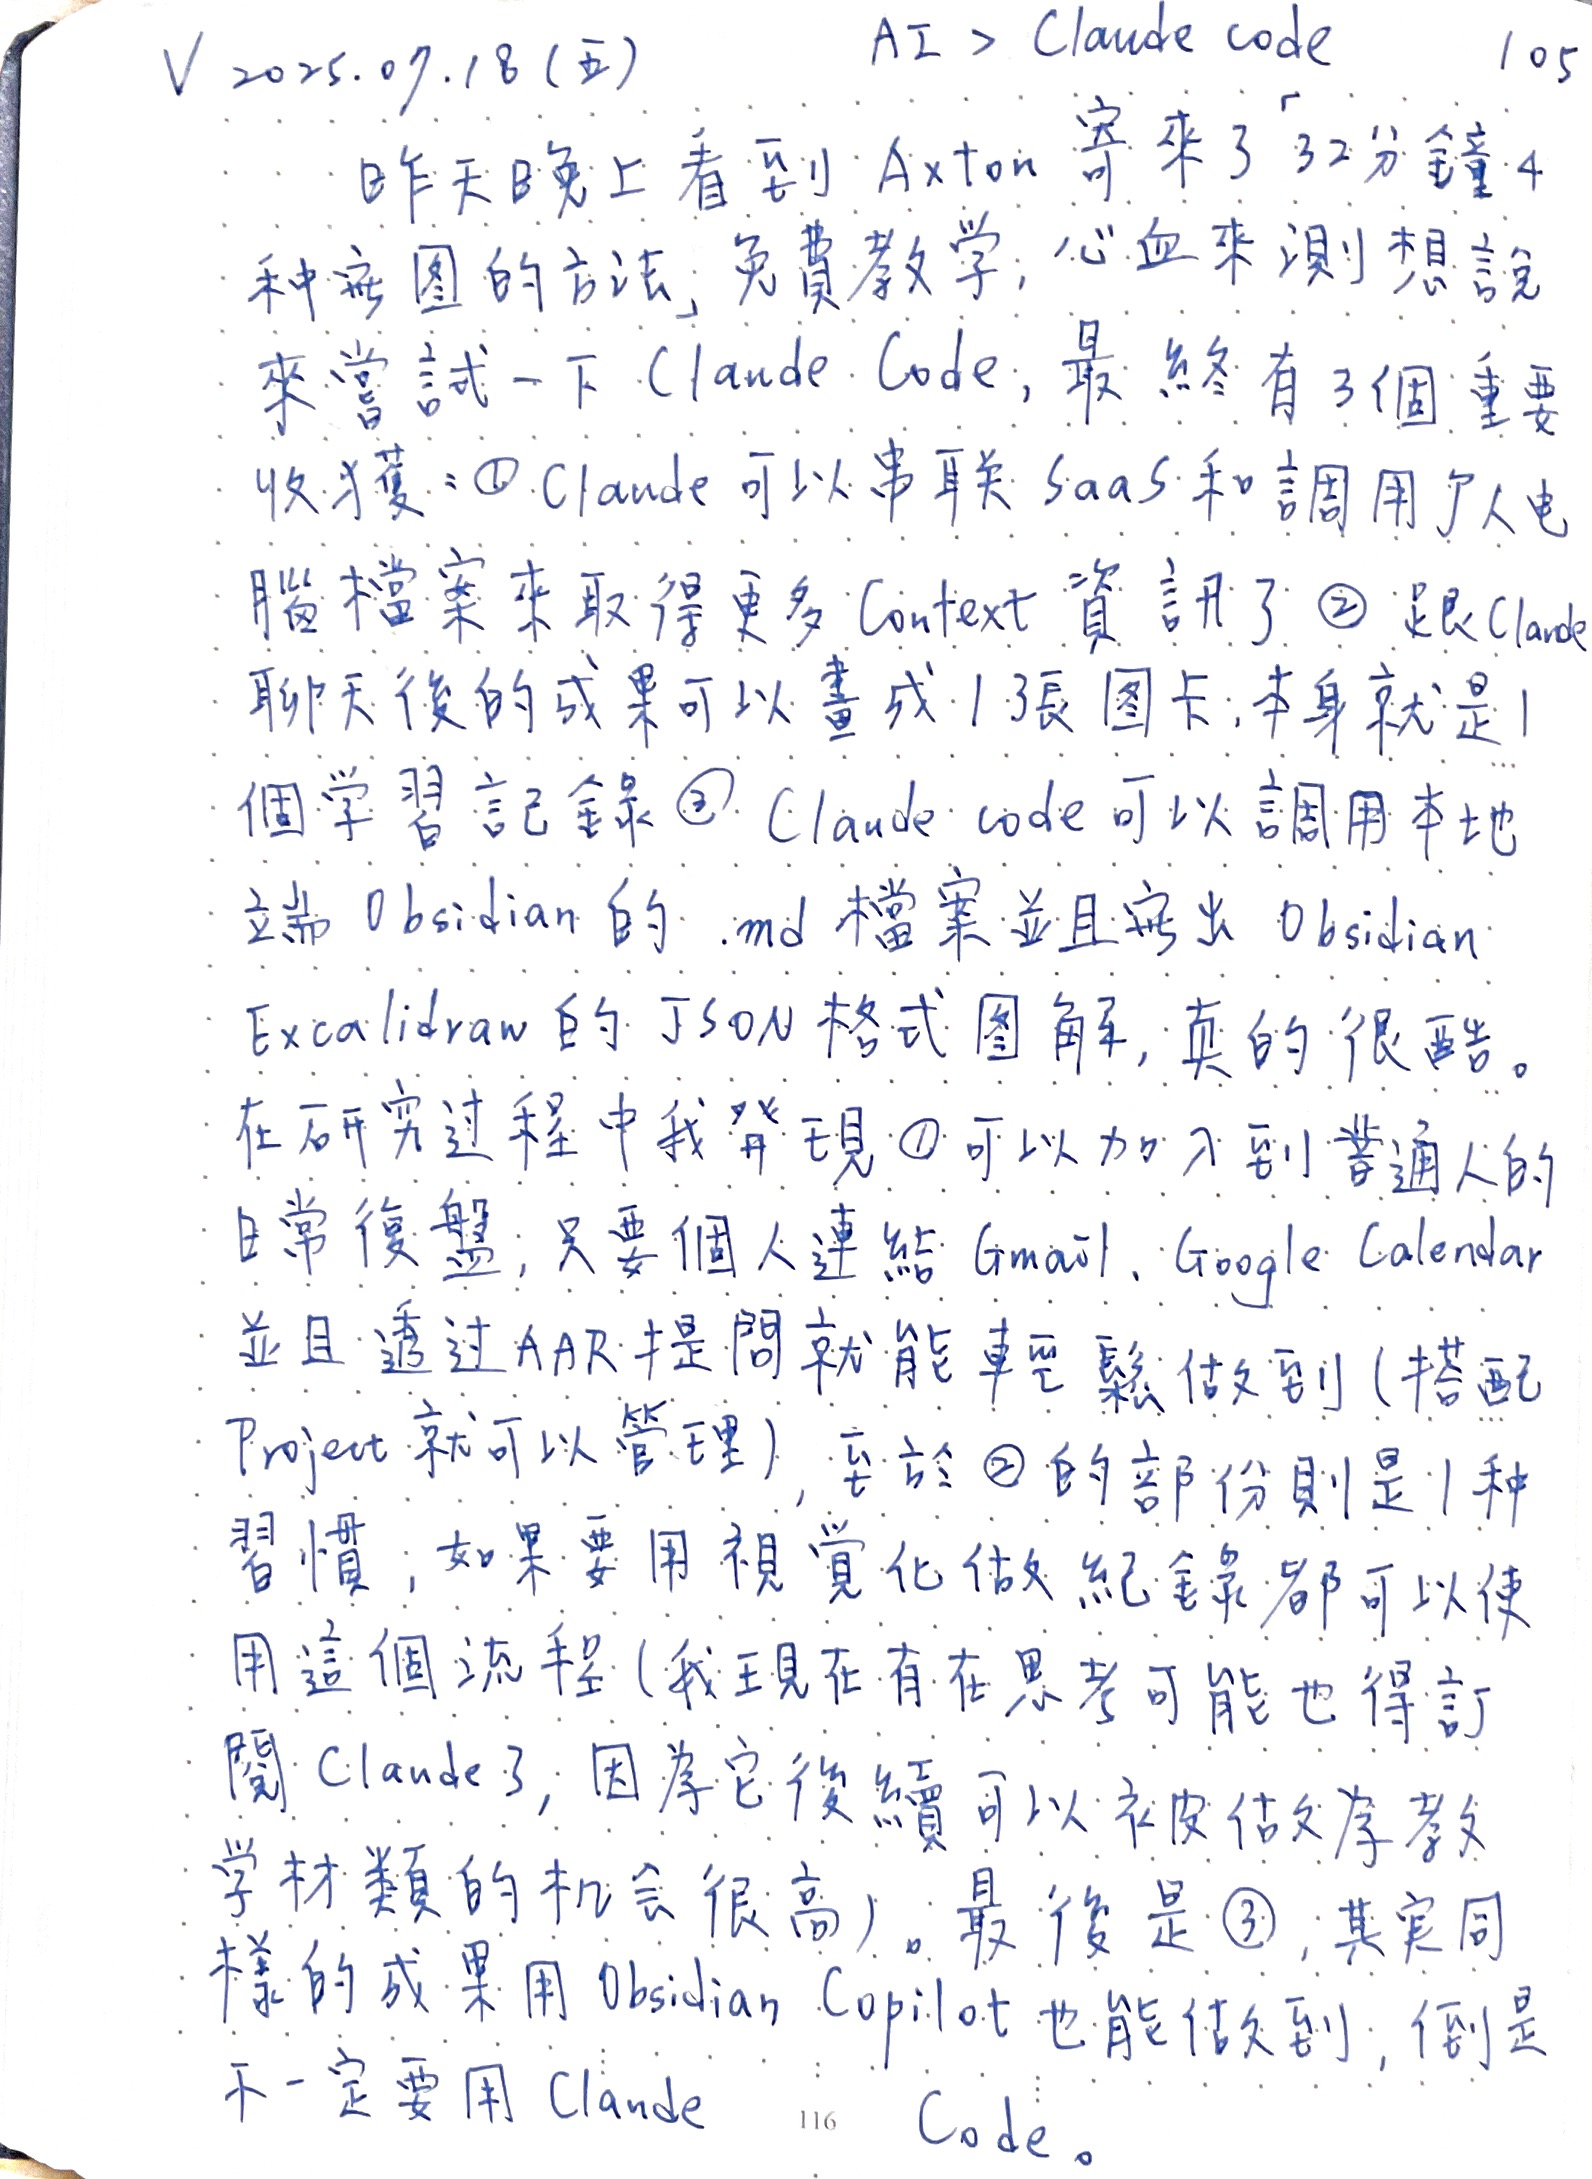 V 2025.07.18(五) AI > Claude code 105
昨天晚上看到 Axton 寄來了「32分鐘4
种产图的方法」免費教学,心血來潮想說
來嘗試一下 Claude Code,最終有3個重要
收獲:① Claude 可以串联 SaaS 和調用个人电
腦檔案來取得更多 Context 資訊了 ② 跟Claude
聊天後的成果可以畫成1張图卡,本身就是1
個学習記錄 ③ Claude code 可以調用本地
端 Obsidian 的 .md 檔案並且产出 Obsidian
Excalidraw 的 JSON 格式图解,真的很酷。
在研究过程中我發現 ① 可以加入到普通人的
日常復盤,只要個人連結 Gmail、Google Calendar
並且透过AAR提問就能輕鬆做到(搭配
Project 就可以管理),至於 ② 的部份則是1种
習慣,如果要用視覺化做紀錄都可以使
用這個流程(我現在有在思考可能也得訂
閱 Claude了,因為它後續可以被做為教
学材類的机会很高)。最後是 ③,其实同
樣的成果用 Obsidian Copilot 也能做到,倒是
不一定要用 Claude Code。
116